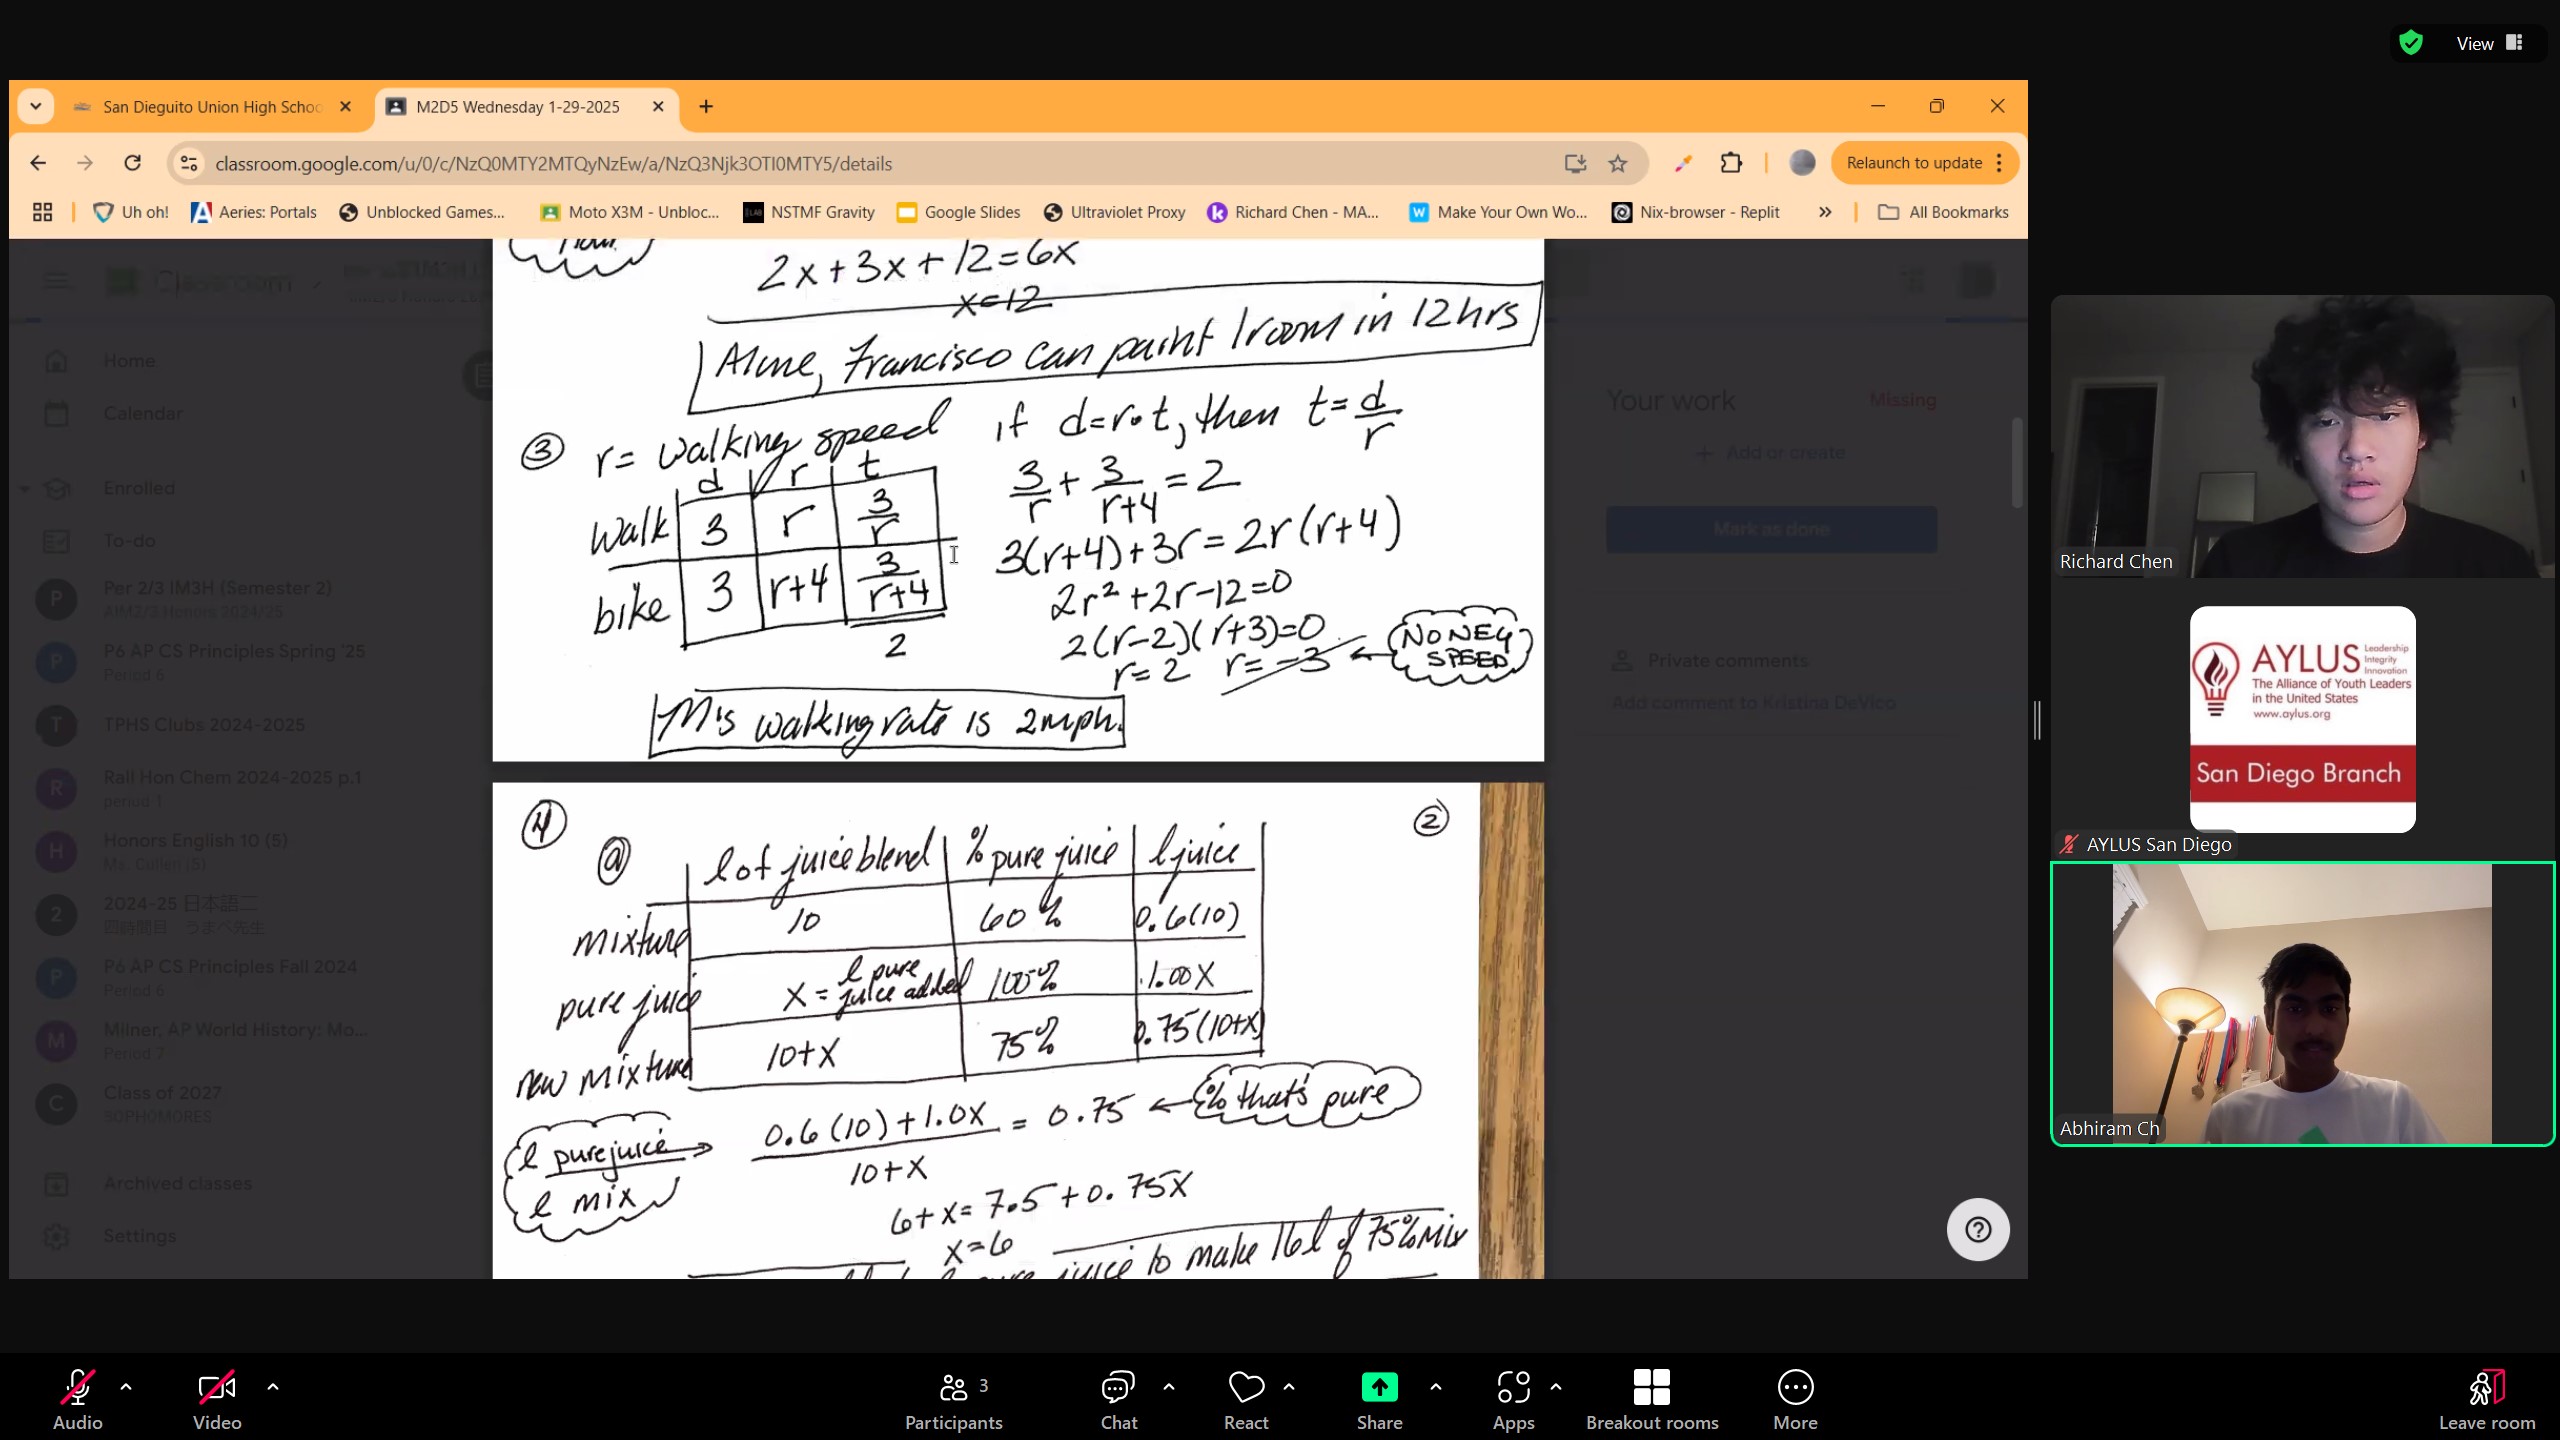 View
San Dieguito Union High Schoo
M2D5 Wednesday 1-29-2025
classroom.google.com/u/0/c/NzQ0MTY2MTQyNzEw/a/NzQ3Njk3OTI0MTY5/details
Relaunch to update
Uh oh!
Aeries: Portals
Unblocked Games...
Moto X3M - Unbloc...
NSTMF Gravity
Google Slides
Ultraviolet Proxy
Richard Chen - MA...
Make Your Own Wo...
Nix-browser - Replit
All Bookmarks
Classroom
Home
Calendar
Enrolled
To-do
P
Per 2/3 IM3H (Semester 2)
AIM2/3 Honors 2024/25
P
P6 AP CS Principles Spring '25
Period 6
T
TPHS Clubs 2024-2025
R
Rall Hon Chem 2024-2025 p.1
period 1
H
Honors English 10 (5)
Ms. Cullen (5)
2
2024-25 日本語二
四時間目 うまべ先生
P
P6 AP CS Principles Fall 2024
Period 6
M
Milner, AP World History: Mo...
Period 7
C
Class of 2027
SOPHOMORES
Archived classes
Settings
hour
2x+3x+12=6x
x=12
Alone, Francisco can paint 1 room in 12 hrs
③ r= walking speed if d=r·t, then t=d/r
d r t
walk 3 r 3/r
bike 3 r+4 3/(r+4)
2
3/r + 3/(r+4) = 2
3(r+4)+3r=2r(r+4)
2r²+2r-12=0
2(r-2)(r+3)=0
r=2 r=-3
NO NEG SPEED
M's walking rate is 2mph.
④ ②
ⓐ l of juice blend % pure juice l juice
mixture 10 60% 0.6(10)
pure juice x = l pure juice added 100% 1.00x
new mixture 10+x 75% 0.75(10+x)
l pure juice
l mix
(0.6(10)+1.0x)/(10+x) = 0.75 ← % that's pure
6+x=7.5+0.75x
x=6
juice to make 16l of 75% Mix
Your work
Missing
+ Add or create
Mark as done
Private comments
Add comment to Kristina DeVico
Richard Chen
AYLUS
Leadership
Integrity
Innovation
The Alliance of Youth Leaders
in the United States
www.aylus.org
San Diego Branch
AYLUS San Diego
Abhiram Ch
Audio
Video
Participants
3
Chat
React
Share
Apps
Breakout rooms
More
Leave room